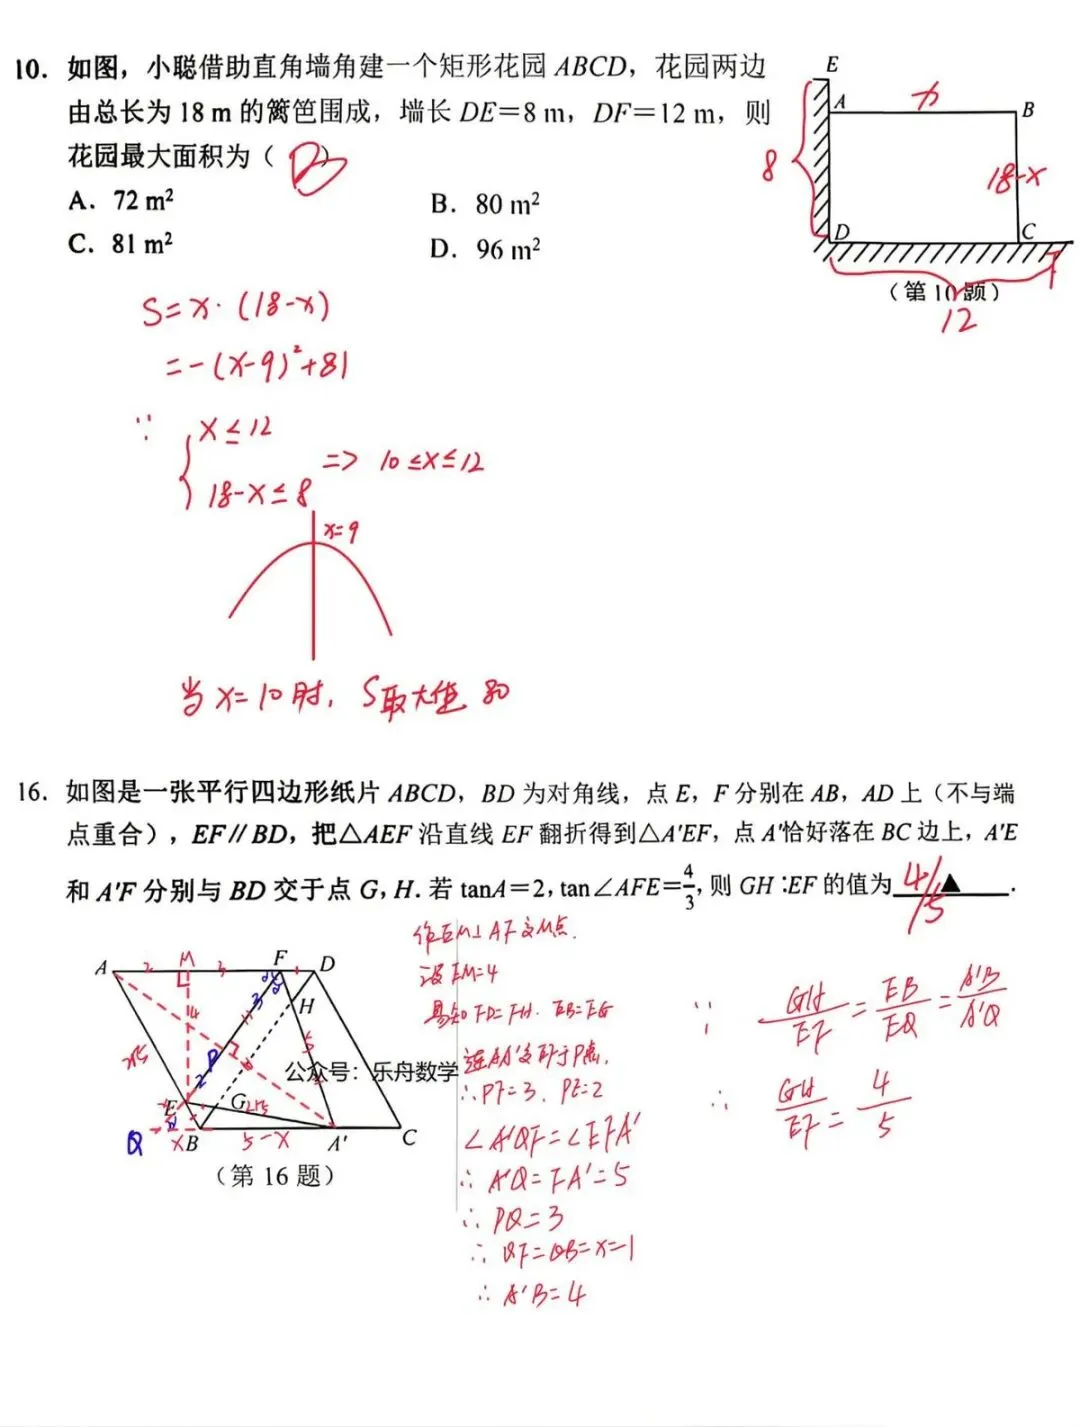 10. 如图，小聪借助直角墙角建一个矩形花园 ABCD，花园两边
由总长为 18 m 的篱笆围成，墙长 DE＝8 m，DF＝12 m，则
花园最大面积为（ B ）
A．72 m²
B．80 m²
C．81 m²
D．96 m²
E
A
x
B
8
18-x
D
C
F
（第 10 题）
12
S=x·(18-x)
=-(x-9)²+81
∵ { x≤12
18-x≤8
=> 10≤x≤12
x=9
当 x=10时，S取大值 80
16. 如图是一张平行四边形纸片 ABCD，BD 为对角线，点 E，F 分别在 AB，AD 上（不与端
点重合），EF∥BD，把△AEF 沿直线 EF 翻折得到△A′EF，点 A′恰好落在 BC 边上，A′E
和 A′F 分别与 BD 交于点 G，H．若 tanA＝2，tan∠AFE＝4/3，则 GH∶EF 的值为 4/5 ▲ ．
A
2
M
3
F
1
D
H
4
3
5
2√5
P
2
E
G
2√5
Q
x
B
5-x
A′
C
（第 16 题）
公众号：乐舟数学
作EM⊥AF交M点．
设EM=4
易知FD=FH．EB=EG
连AA′交EF于P点．
∴PF=3．PE=2
∠A′QF=∠EFA′
∴A′Q=FA′=5
∴PQ=3
∴QE=QB=x=1
∴A′B=4
∵ GH/EF = EB/EQ = A′B/A′Q
∴ GH/EF = 4/5